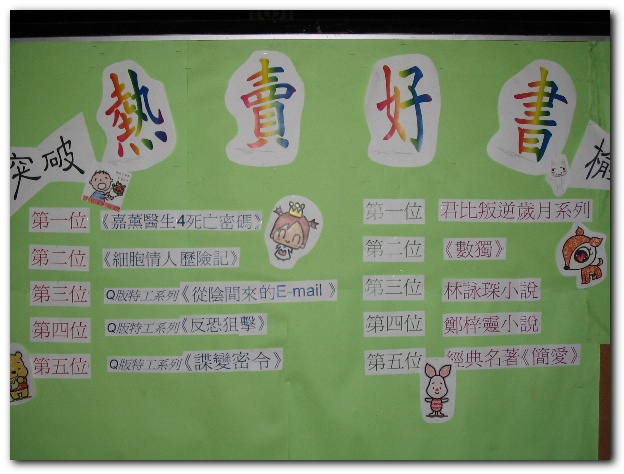 熱賣好書
突破
第一位 《嘉薰醫生4死亡密碼》
第二位 《細胞情人歷險記》
第三位 Q版特工系列《從陰間來的E-mail 》
第四位 Q版特工系列《反恐狙擊》
第五位 Q版特工系列《諜變密令》
第一位 君比叛逆歲月系列
第二位 《數獨》
第三位 林詠琛小說
第四位 鄭梓靈小說
第五位 經典名著《簡愛》